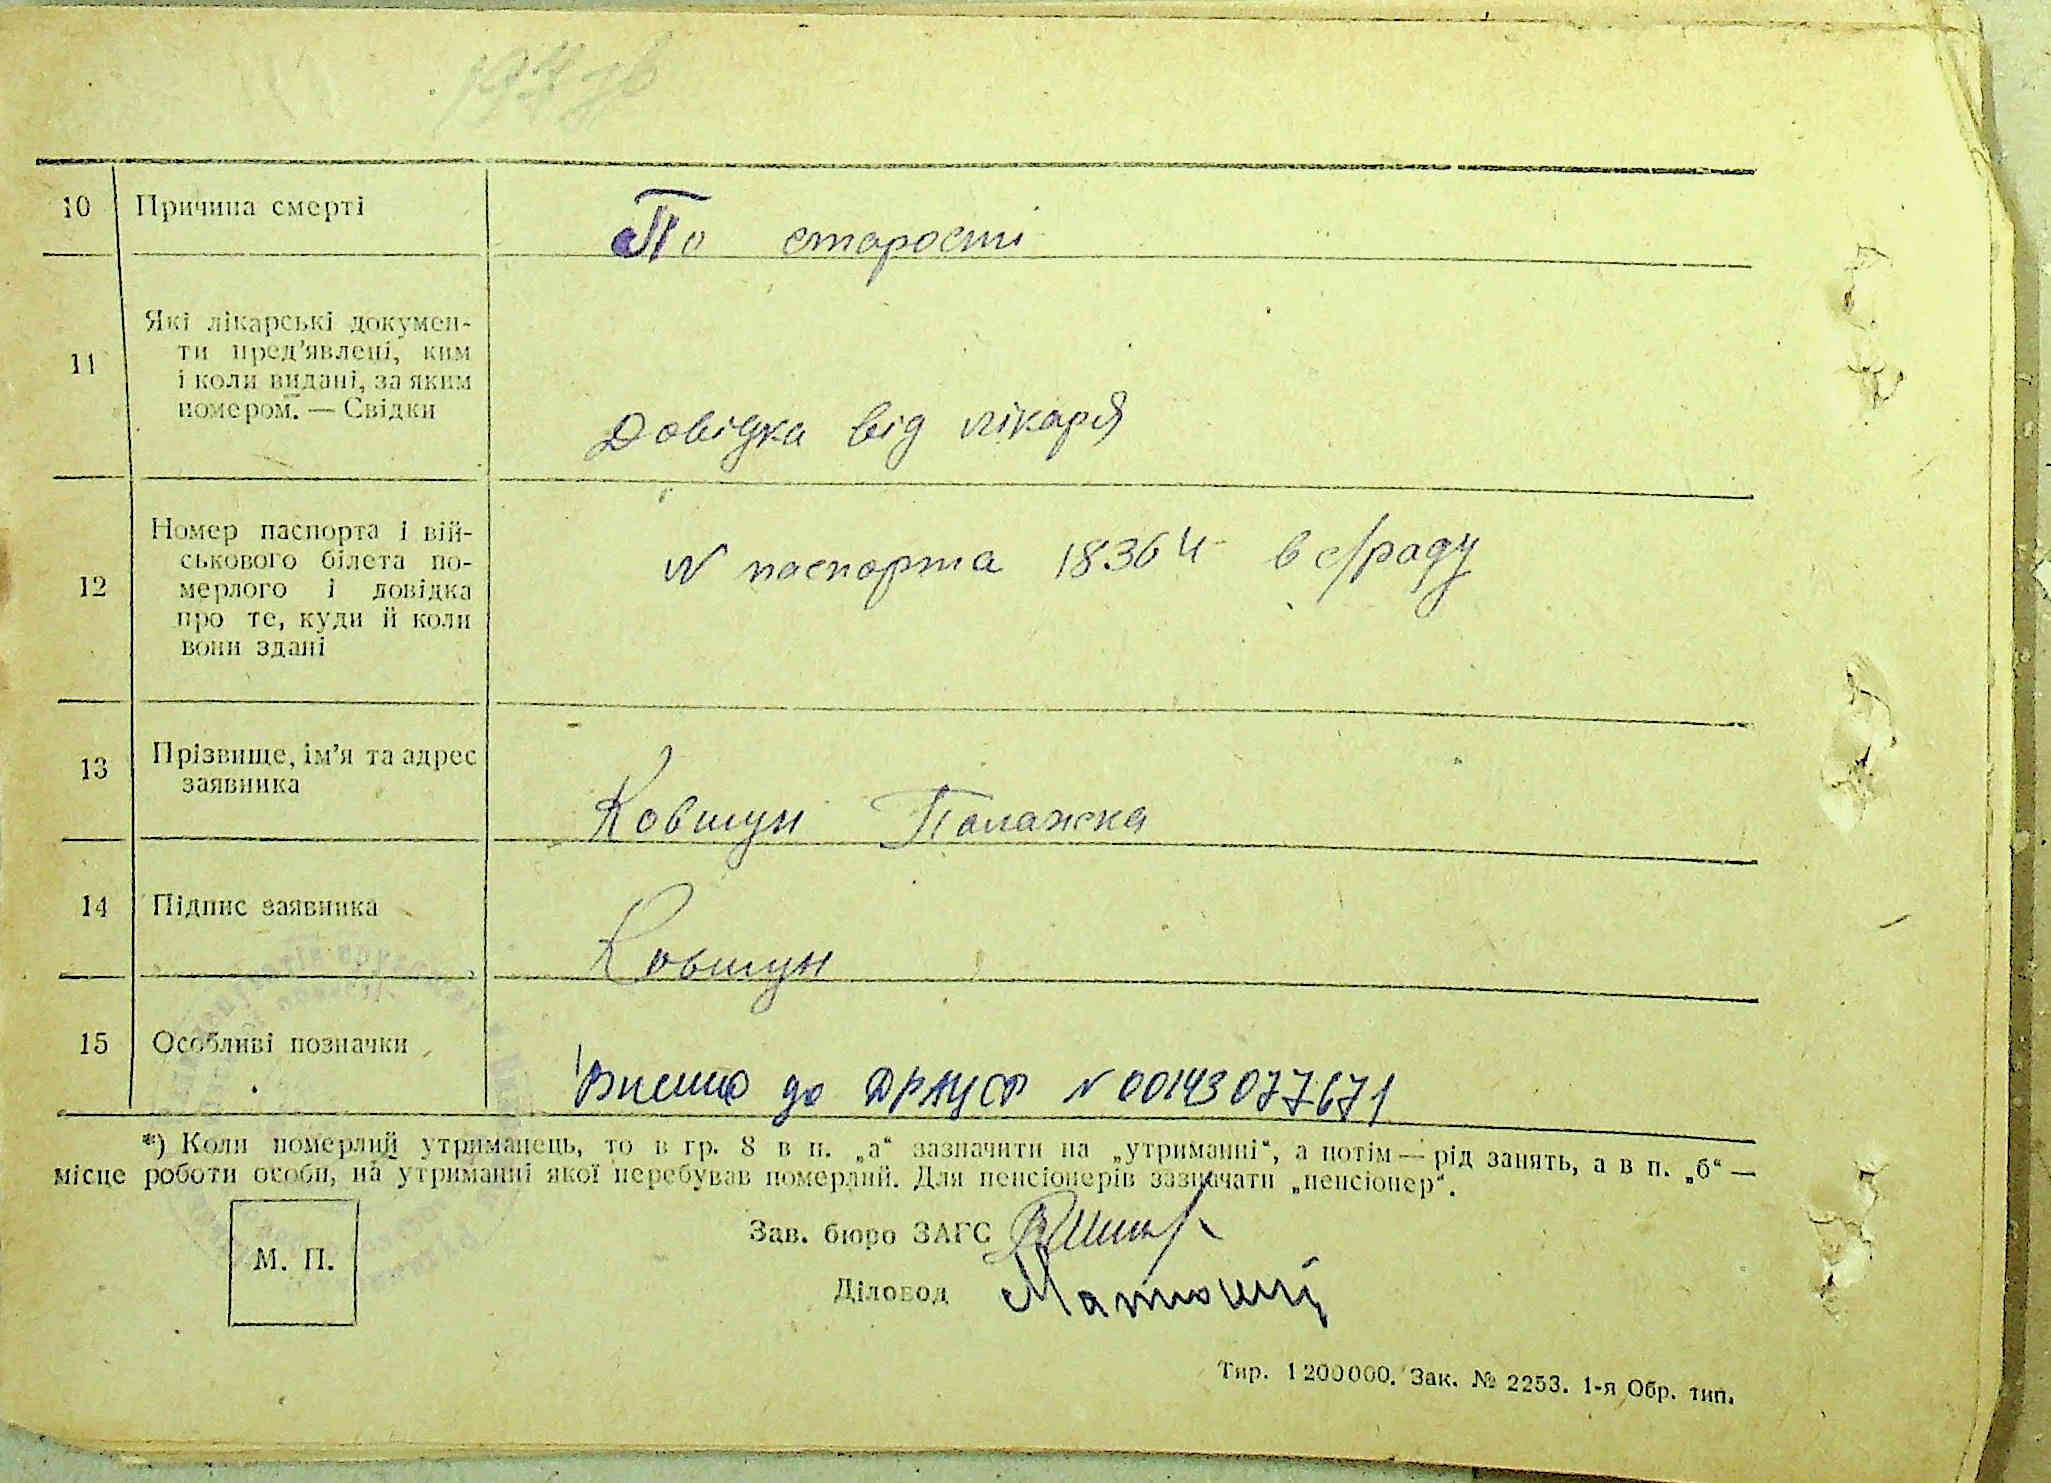 10 Причина смерті По старості
11 Які лікарські докумен-
ти пред'явлені, ким
і коли видані, за яким
номером. — Свідки
Довідка від лікаря
12 Номер паспорта і вій-
ськового білета по-
мерлого і довідка
про те, куди й коли
вони здані
N паспорта 18364 в с/раду
13 Прізвище, ім'я та адрес
заявника
Ковтун Палажка
14 Підпис заявника Ковтун
15 Особливі позначки Внесено до ДРАЦСГ N 00143077671
*) Коли померлий утриманець, то в гр. 8 в п. „а“ зазначити на „утриманні“, а потім — рід занять, а в п. „б“ —
місце роботи особи, на утриманні якої перебував померлий. Для пенсіонерів зазначати „пенсіонер“.
Зав. бюро ЗАГС
М. П.
Діловод
Тир. 1 200 000. Зак. № 2253. 1-я Обр. тип.